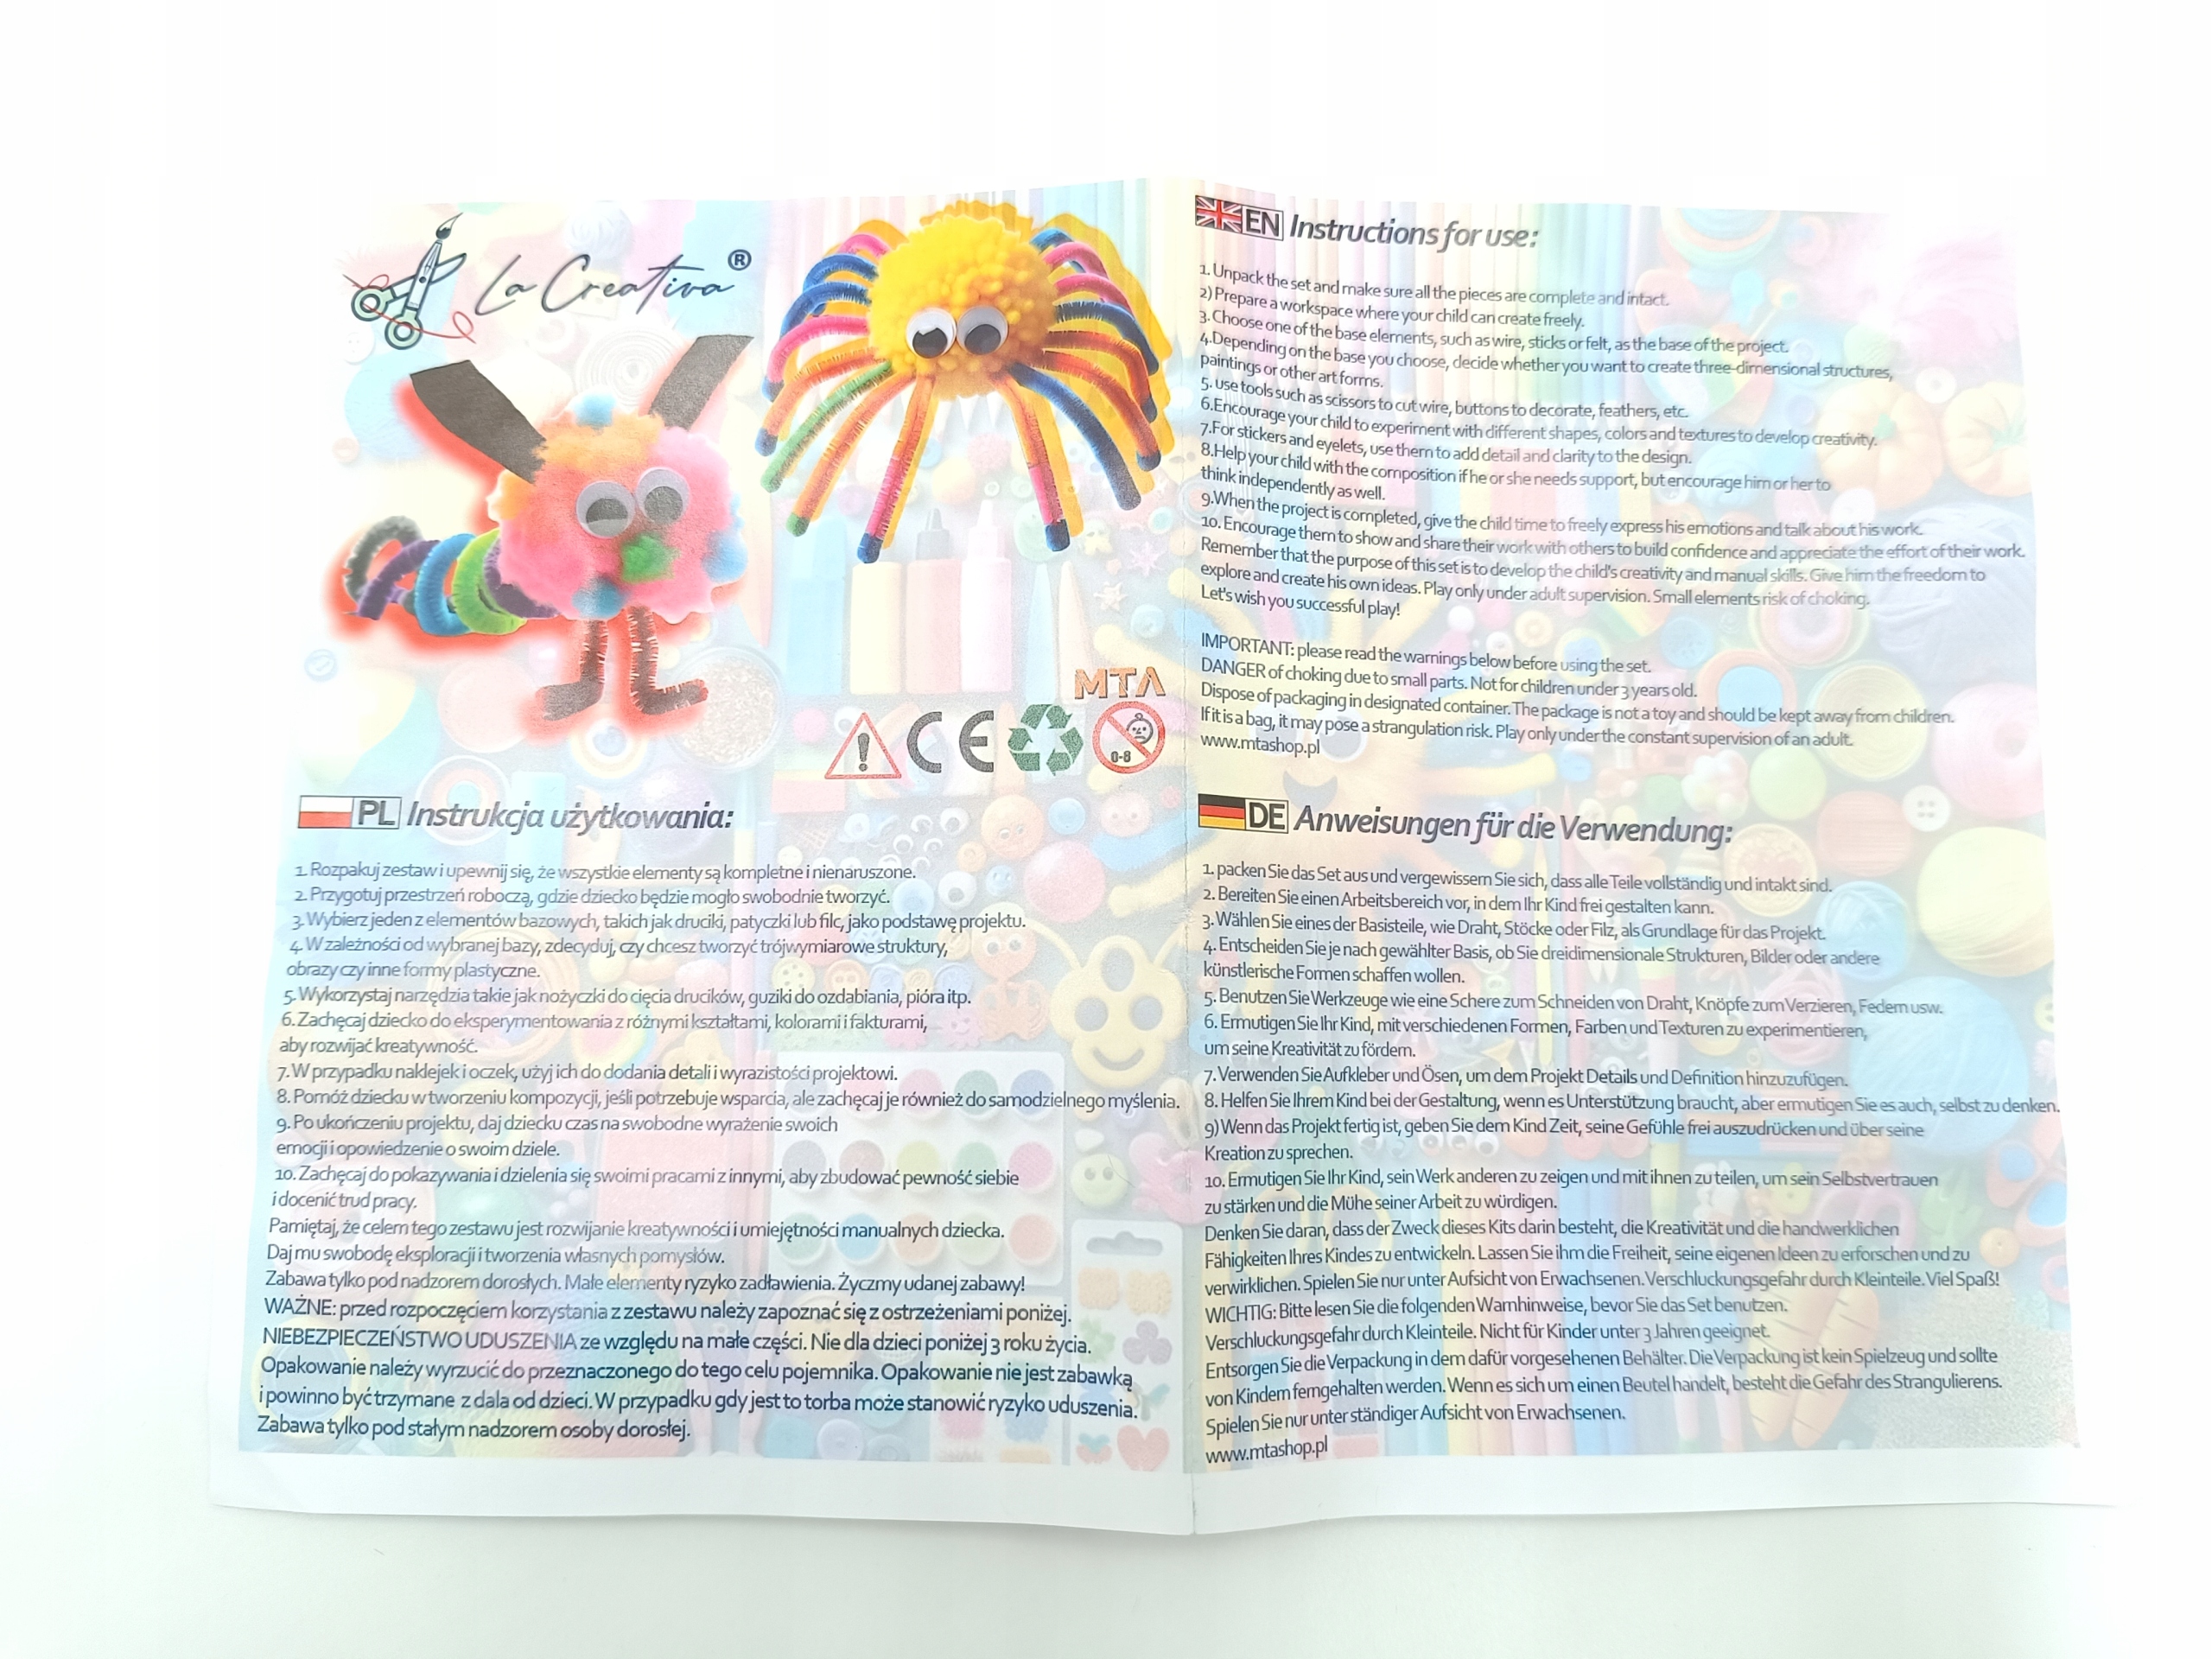 La Creativa®
MTA
CE
0-8
PL Instrukcja użytkowania:
1. Rozpakuj zestaw i upewnij się, że wszystkie elementy są kompletne i nienaruszone.
2. Przygotuj przestrzeń roboczą, gdzie dziecko będzie mogło swobodnie tworzyć.
3. Wybierz jeden z elementów bazowych, takich jak druciki, patyczki lub filc, jako podstawę projektu.
4. W zależności od wybranej bazy, zdecyduj, czy chcesz tworzyć trójwymiarowe struktury,
obrazy czy inne formy plastyczne.
5. Wykorzystaj narzędzia takie jak nożyczki do cięcia drucików, guziki do ozdabiania, pióra itp.
6. Zachęcaj dziecko do eksperymentowania z różnymi kształtami, kolorami i fakturami,
aby rozwijać kreatywność.
7. W przypadku naklejek i oczek, użyj ich do dodania detali i wyrazistości projektowi.
8. Pomóż dziecku w tworzeniu kompozycji, jeśli potrzebuje wsparcia, ale zachęcaj je również do samodzielnego myślenia.
9. Po ukończeniu projektu, daj dziecku czas na swobodne wyrażenie swoich
emocji i opowiedzenie o swoim dziele.
10. Zachęcaj do pokazywania i dzielenia się swoimi pracami z innymi, aby zbudować pewność siebie
i docenić trud pracy.
Pamiętaj, że celem tego zestawu jest rozwijanie kreatywności i umiejętności manualnych dziecka.
Daj mu swobodę eksploracji i tworzenia własnych pomysłów.
Zabawa tylko pod nadzorem dorosłych. Małe elementy ryzyko zadławienia. Życzmy udanej zabawy!
WAŻNE: przed rozpoczęciem korzystania z zestawu należy zapoznać się z ostrzeżeniami poniżej.
NIEBEZPIECZEŃSTWO UDUSZENIA ze względu na małe części. Nie dla dzieci poniżej 3 roku życia.
Opakowanie należy wyrzucić do przeznaczonego do tego celu pojemnika. Opakowanie nie jest zabawką
i powinno być trzymane z dala od dzieci. W przypadku gdy jest to torba może stanowić ryzyko uduszenia.
Zabawa tylko pod stałym nadzorem osoby dorosłej.
EN Instructions for use:
1. Unpack the set and make sure all the pieces are complete and intact.
2) Prepare a workspace where your child can create freely.
3. Choose one of the base elements, such as wire, sticks or felt, as the base of the project.
4.Depending on the base you choose, decide whether you want to create three-dimensional structures,
paintings or other art forms.
5. use tools such as scissors to cut wire, buttons to decorate, feathers, etc.
6.Encourage your child to experiment with different shapes, colors and textures to develop creativity.
7.For stickers and eyelets, use them to add detail and clarity to the design.
8.Help your child with the composition if he or she needs support, but encourage him or her to
think independently as well.
9.When the project is completed, give the child time to freely express his emotions and talk about his work.
10. Encourage them to show and share their work with others to build confidence and appreciate the effort of their work.
Remember that the purpose of this set is to develop the child's creativity and manual skills. Give him the freedom to
explore and create his own ideas. Play only under adult supervision. Small elements risk of choking.
Let's wish you successful play!
IMPORTANT: please read the warnings below before using the set.
DANGER of choking due to small parts. Not for children under 3 years old.
Dispose of packaging in designated container. The package is not a toy and should be kept away from children.
If it is a bag, it may pose a strangulation risk. Play only under the constant supervision of an adult.
www.mtashop.pl
DE Anweisungen für die Verwendung:
1. packen Sie das Set aus und vergewissern Sie sich, dass alle Teile vollständig und intakt sind.
2. Bereiten Sie einen Arbeitsbereich vor, in dem Ihr Kind frei gestalten kann.
3. Wählen Sie eines der Basisteile, wie Draht, Stöcke oder Filz, als Grundlage für das Projekt.
4. Entscheiden Sie je nach gewählter Basis, ob Sie dreidimensionale Strukturen, Bilder oder andere
künstlerische Formen schaffen wollen.
5. Benutzen Sie Werkzeuge wie eine Schere zum Schneiden von Draht, Knöpfe zum Verzieren, Federn usw.
6. Ermutigen Sie Ihr Kind, mit verschiedenen Formen, Farben und Texturen zu experimentieren,
um seine Kreativität zu fördern.
7. Verwenden Sie Aufkleber und Ösen, um dem Projekt Details und Definition hinzuzufügen.
8. Helfen Sie Ihrem Kind bei der Gestaltung, wenn es Unterstützung braucht, aber ermutigen Sie es auch, selbst zu denken.
9) Wenn das Projekt fertig ist, geben Sie dem Kind Zeit, seine Gefühle frei auszudrücken und über seine
Kreation zu sprechen.
10. Ermutigen Sie Ihr Kind, sein Werk anderen zu zeigen und mit ihnen zu teilen, um sein Selbstvertrauen
zu stärken und die Mühe seiner Arbeit zu würdigen.
Denken Sie daran, dass der Zweck dieses Kits darin besteht, die Kreativität und die handwerklichen
Fähigkeiten Ihres Kindes zu entwickeln. Lassen Sie ihm die Freiheit, seine eigenen Ideen zu erforschen und zu
verwirklichen. Spielen Sie nur unter Aufsicht von Erwachsenen. Verschluckungsgefahr durch Kleinteile. Viel Spaß!
WICHTIG: Bitte lesen Sie die folgenden Warnhinweise, bevor Sie das Set benutzen.
Verschluckungsgefahr durch Kleinteile. Nicht für Kinder unter 3 Jahren geeignet.
Entsorgen Sie die Verpackung in dem dafür vorgesehenen Behälter. Die Verpackung ist kein Spielzeug und sollte
von Kindern ferngehalten werden. Wenn es sich um einen Beutel handelt, besteht die Gefahr des Strangulierens.
Spielen Sie nur unter ständiger Aufsicht von Erwachsenen.
www.mtashop.pl